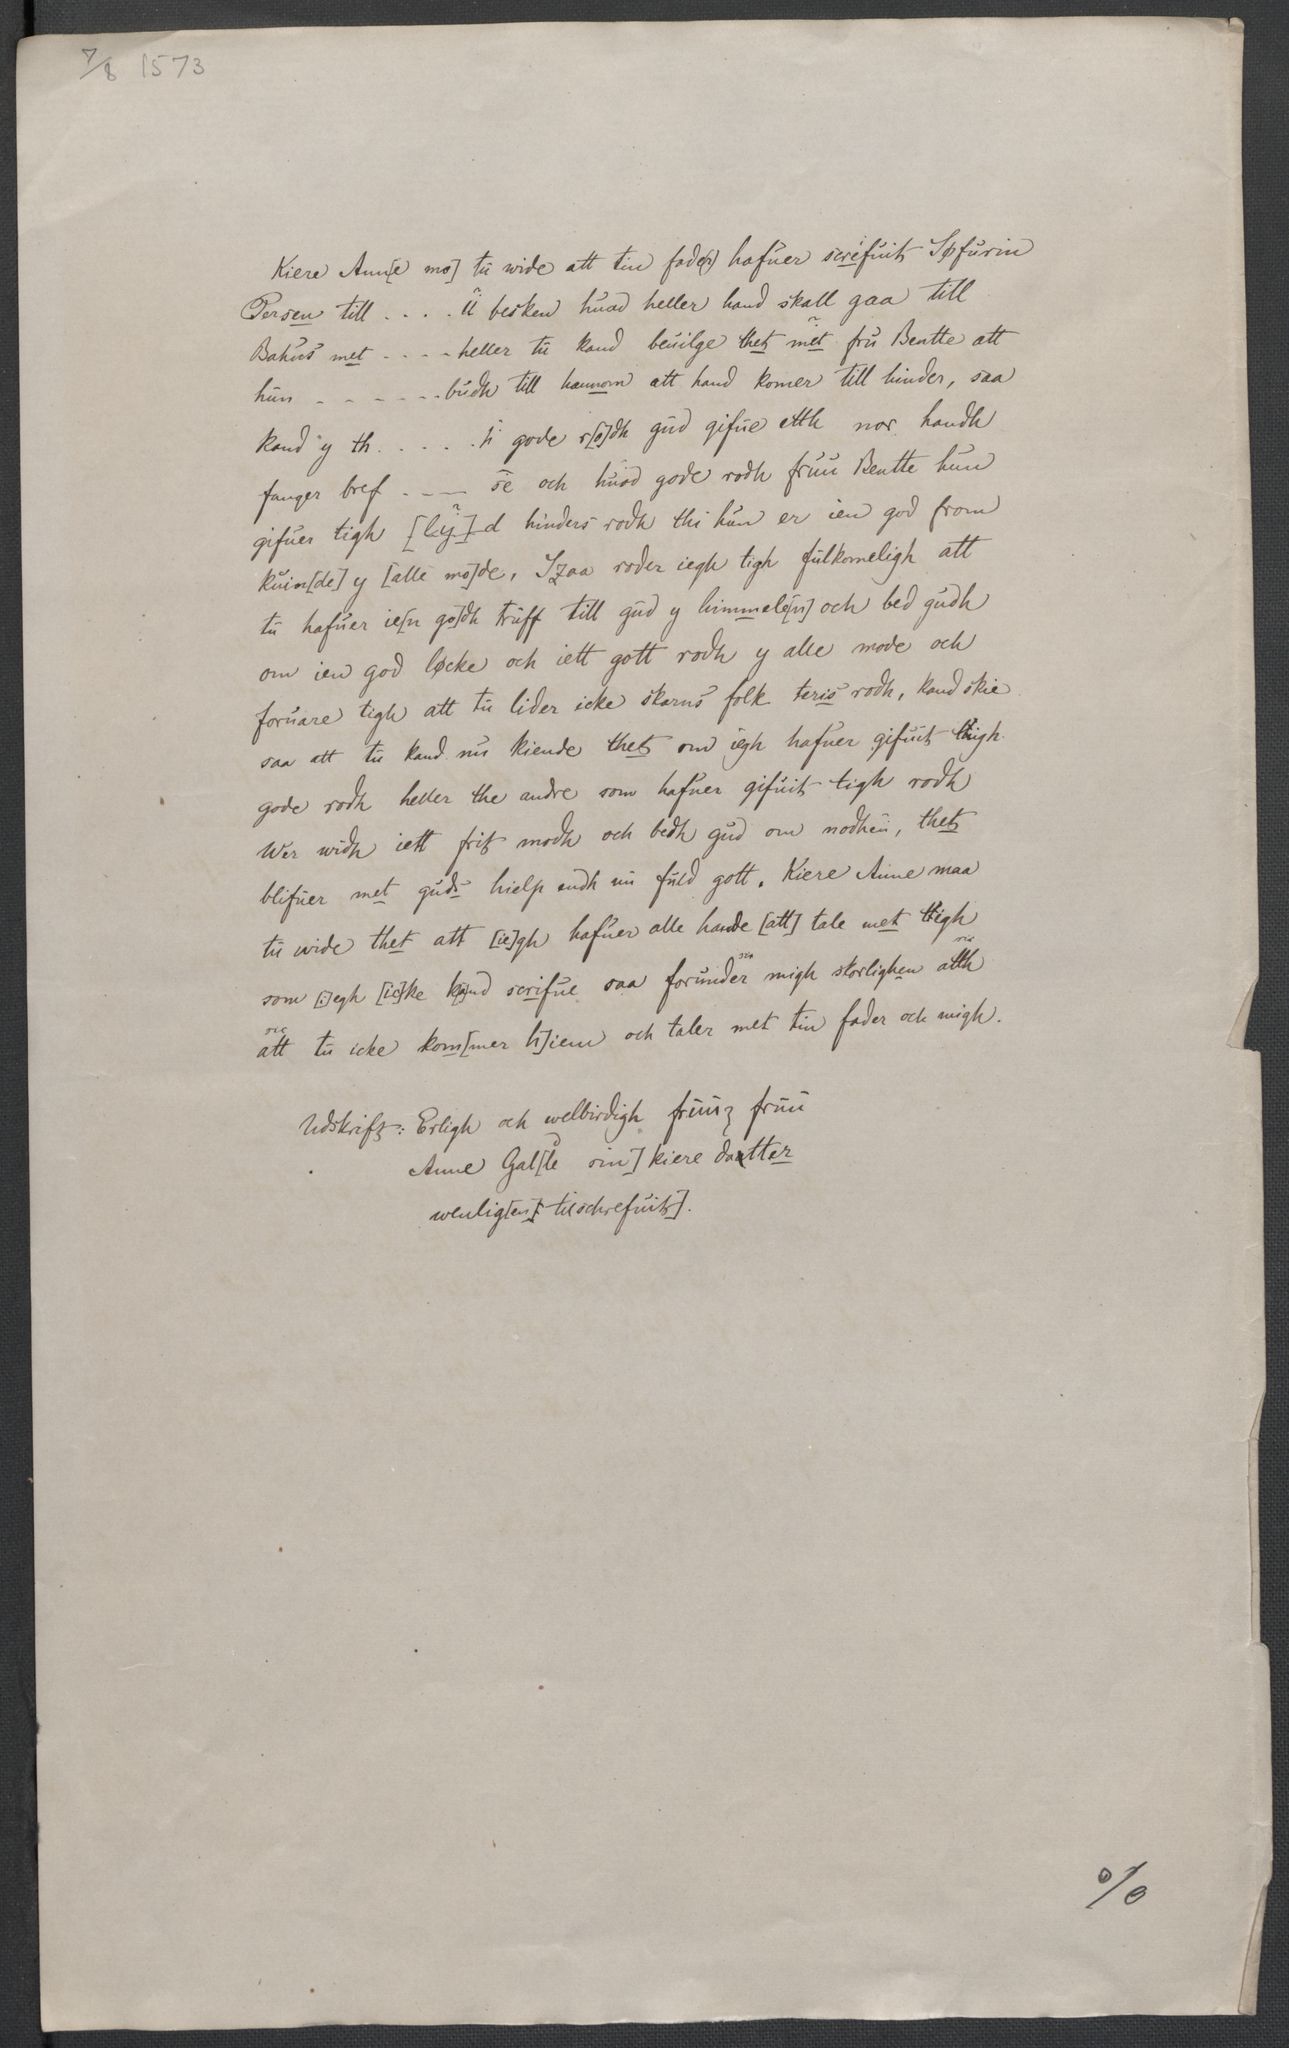 7/8 1573
Kiere Ann[e mo] tu wide att tin fade[r] hafuer screfuit Søfurin
Persen till . . . . ü besken huad heller hand skall gaa till
Bahus met - - - - heller tu kand beuilge thet met fru Bentte att
hun - - - - - - - budh till hannom att hand komer till hinder, saa
kand y th. . . . . ü gode r[o]dh gud gifue etth nor handh
fanger bref - - — se och huad gode rodh fruu Bentte hun
gifuer tigh [lÿ]d hinders rodh thi hun er ien god from
kuin[de] y [alle mo]de. Izaa roder iegh tigh fulkomeligh att
tu hafuer ie[n go]dh truff till gud y himmele[n] och bed gudh
om ien god løcke och iett gott rodh y alle mode och
foruare tigh att tu lider icke skarns folk teris rodh, kand skie
saa att tu kand nu kiende thet om iegh hafuer gifuit thigh
gode rodh heller the andre som hafuer gifuit tigh rodh
Wer widh iett frit modh och bedh gud om nodhen, thet
blifuer met guds hielp endh nu fuld gott. Kiere Anne maa
tu wide thet att [ie]gh hafuer alle hande [att] tale met thigh
som [i]egh [ic]ke k[a]nd scrifue saa forunder sic migh storlighen atth sic
sic att tu icke kom[mer h]iem och taler met tin fader och migh.
Udskrift: Erligh och welbirdigh fruuz fruu
Anne Gal[le sin] kiere daatter
wenlig[en] tilschrefuit].
%